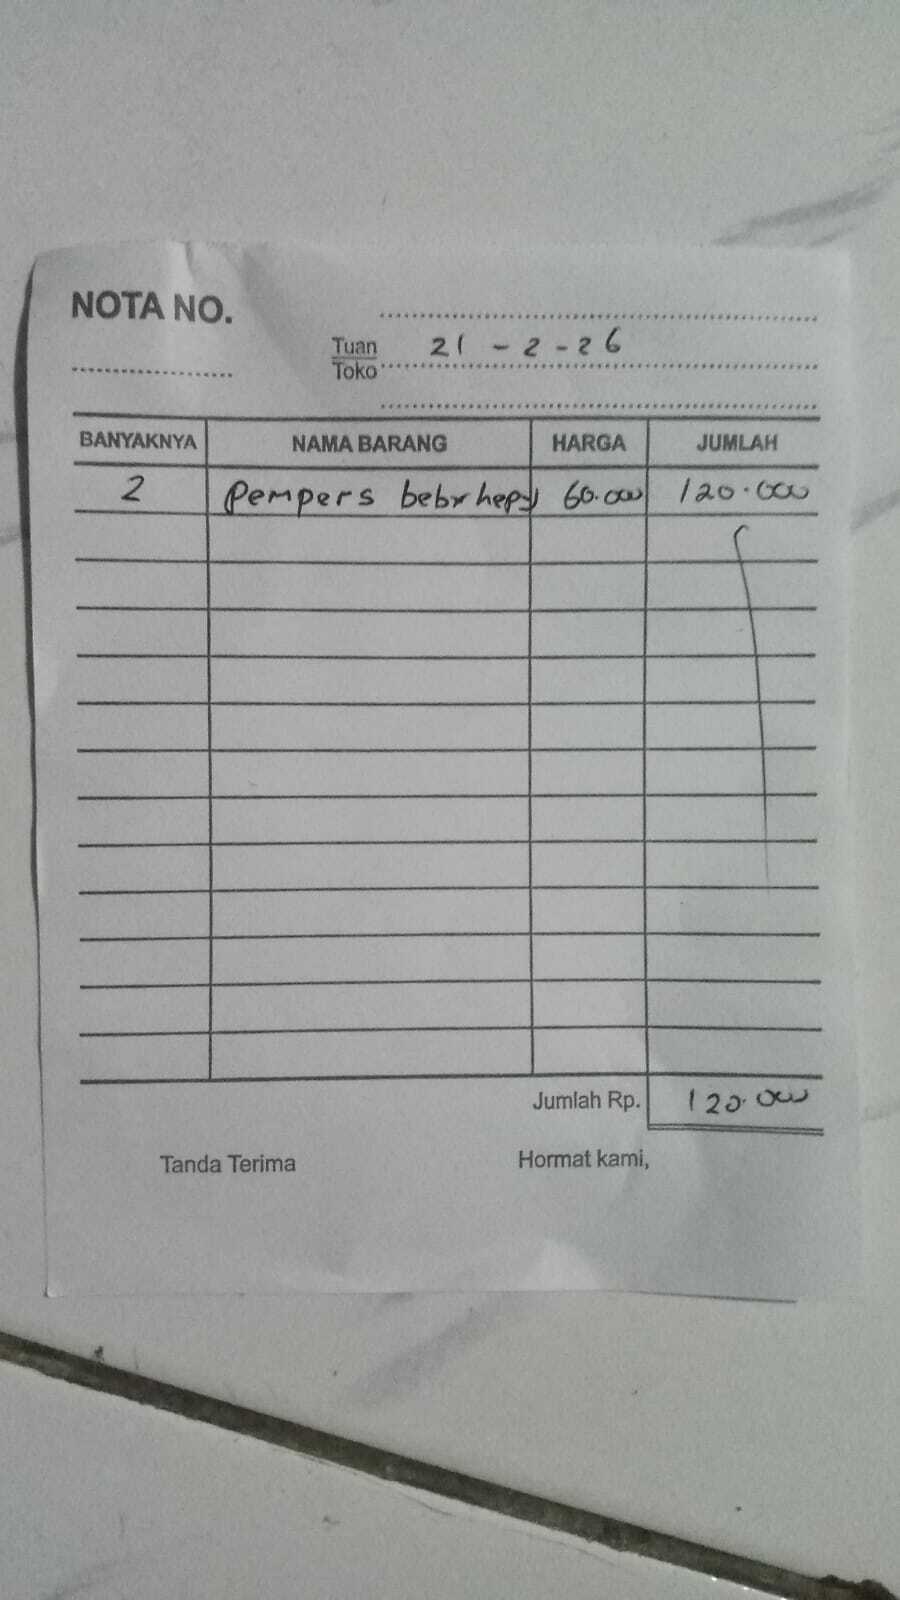 NOTA NO.
Tuan 21 - 2 - 26
Toko
BANYAKNYA NAMA BARANG HARGA JUMLAH
2 pempers hepy 60.000 120.000
Jumlah Rp. 120.000
Tanda Terima Hormat kami,